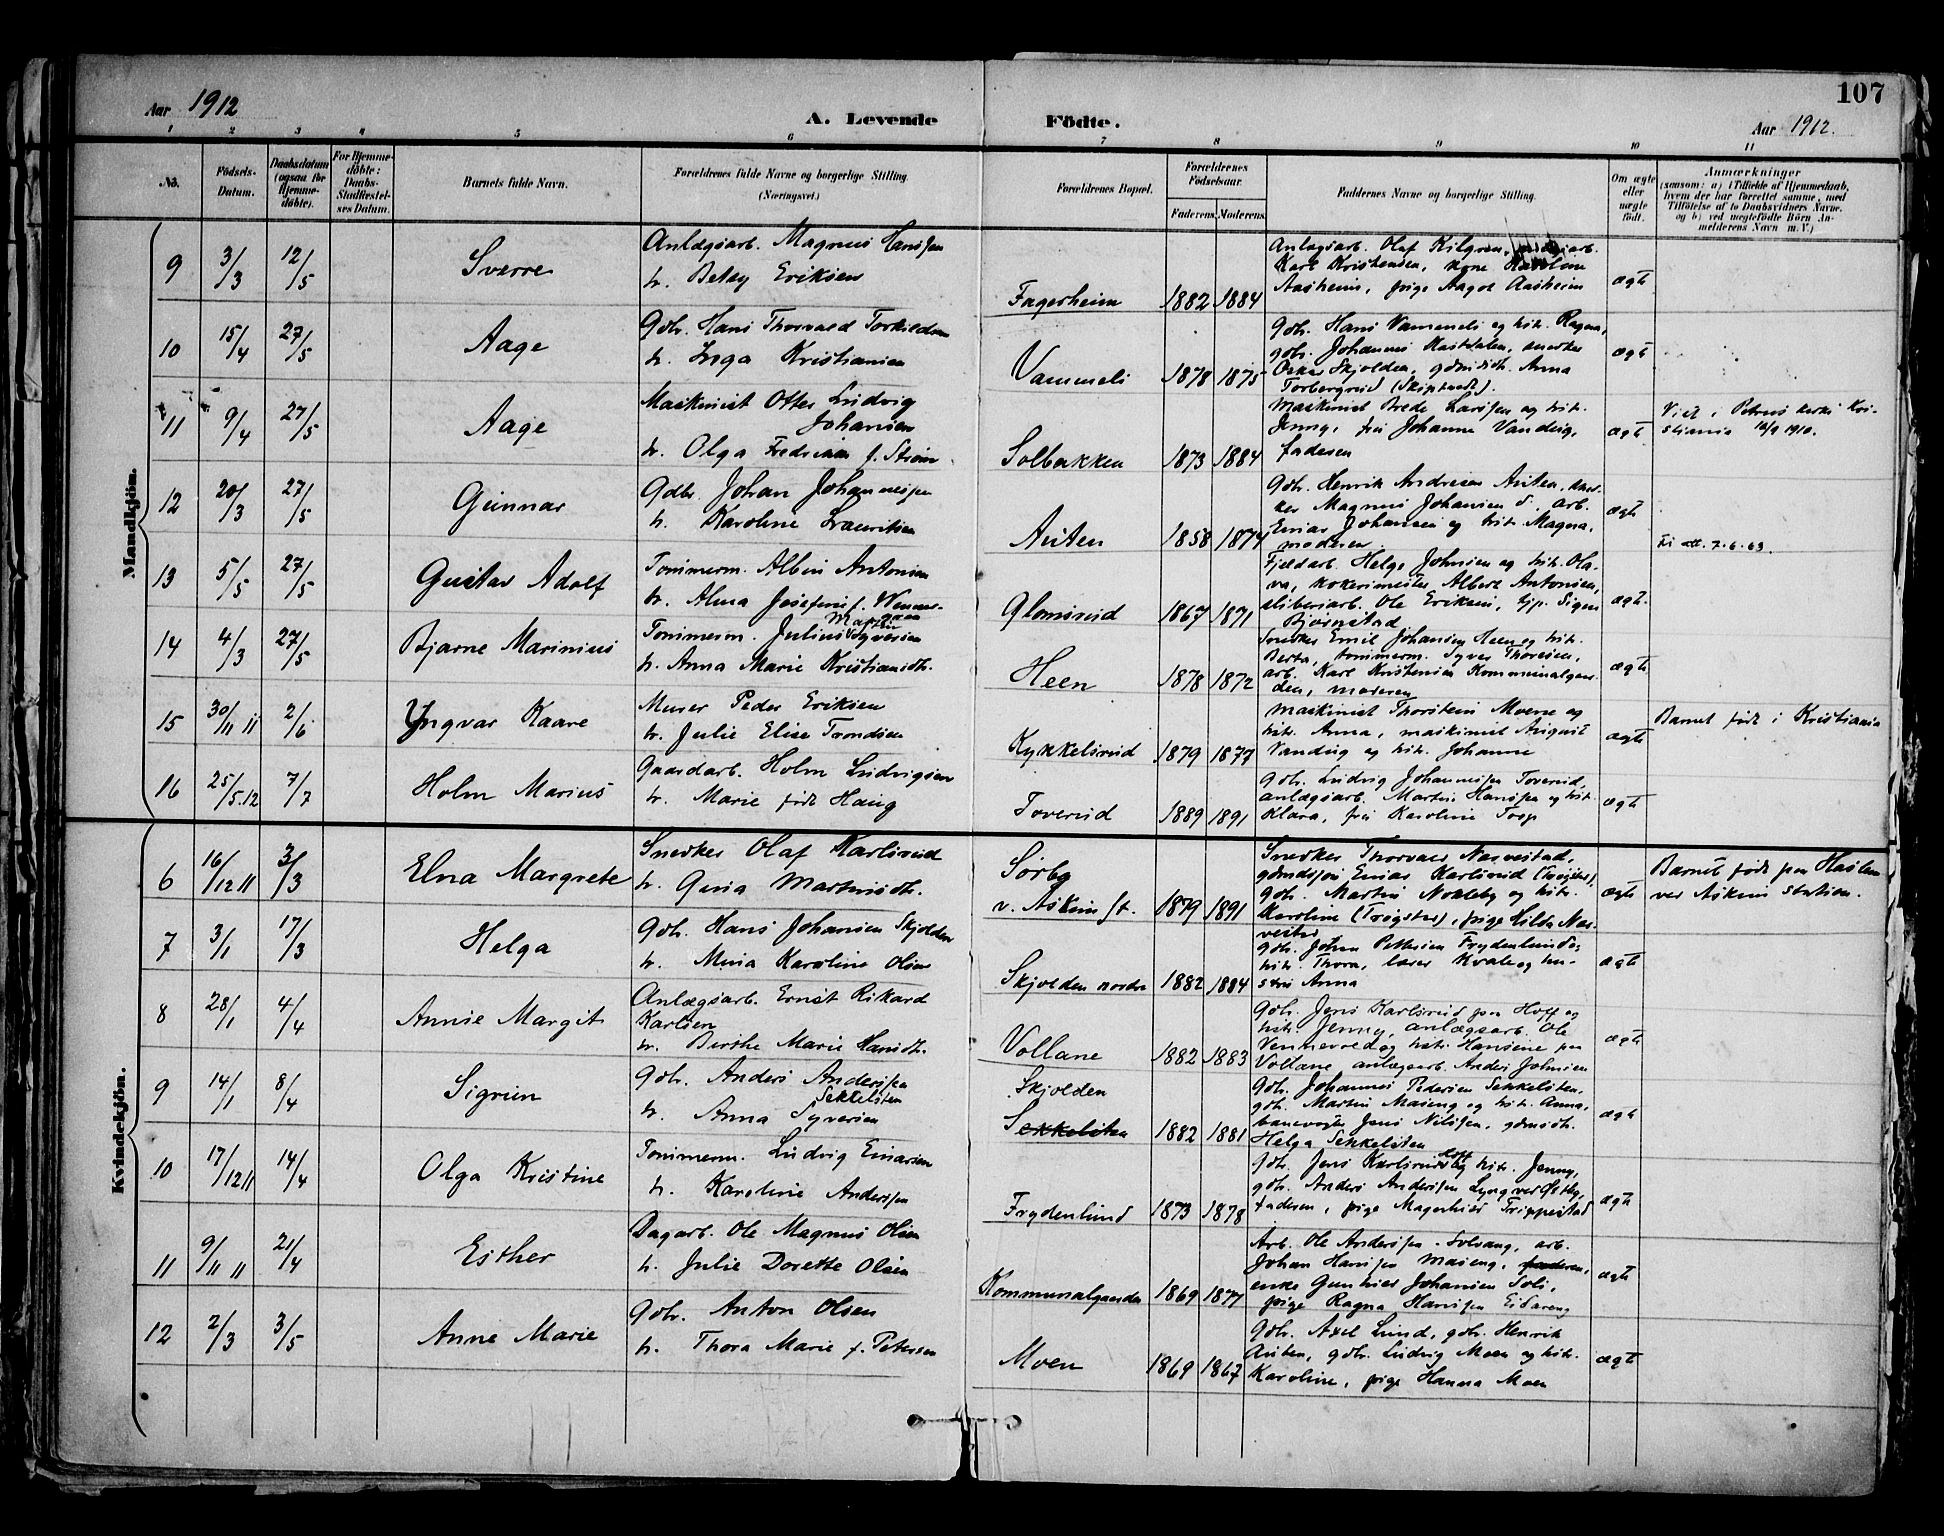 107
Aar 1912
A. Levende Födte.
Aar 1912.
1 2 3 4 5 6 7 8 9 10 11
No.
Födsels-Datum.
Daabsdatum (ogsaa for Hjemmedöbte).
For Hjemmedöbte: Daabs-Stadfæstelses Datum.
Barnets fulde Navn.
Forældrenes fulde Navne og borgerlige Stilling. (Næringsvei.)
Forældrenes Bopæl.
Forældrenes Födselsaar.
Faderens. Moderens.
Faddernes Navne og borgerlige Stilling.
Om ægte eller uægte födt.
Anmærkninger
(saasom: a) i Tilfælde af Hjemmedaab,
hvem der har forrettet samme, med
Tilföielse af to Daabsvidners Navne.
og b) ved uægtefödte Börn An-
melderens Navn m. V.)
Mandkjön.
9 3/3 12/5 Sverre
Anlægsarb. Magnus Hanssen
h. Betsy Eriksen
Fagerheim 1882 1884
Anlægsarb. Olaf Kilgren,
Karl Kristensen, kone Karoline
Aasheim, pige Aagot Aasheim
ægte
10 15/4 27/5 Aage
Gdbr. Hans Thorvald Torkildsen
h. Inga Kristiansen
Vammeli 1878 1875
Gdbr. Hans Vammeli og hstr. Ragna,
gdbr. Johannes snedker
Oskar Skjolden, gdmdsdtr. Anna
Torbergrud (Skiptvedt).
ægte
11 9/4 27/5 Aage
Maskinist Otter Ludvig
Johansen
h. Olga Fredrikke f. Strøm
Solbakken 1873 1884
Maskinist Brede Larssen og hstr.
Jenny, fru Johanne Vandvig,
faderen
ægte
Viet i Petrus kirke Kri-
stiania 18/9 1910.
12 20/3 27/5 Gunnar
Gdbr. Johan Johannessen
h. Karoline Lauritsen
Auten 1858 1874
Gdbr. Henrik Andresen Auten, snedker
Magnus Johansen d., arb.
Einar Johansen og hstr. Magna,
moderen
ægte
7.6.63.
13 5/5 27/5 Gustav Adolf
Tømmerm. Albin Antonsen
h. Alma Josefine f. Wennergren
Glomsrud 1867 1871
Fjeldarb. Helge Johnsen og hstr. Ola-
va, kokerimester Albert Antonsen,
sliberiarb. Ole Eriksen, tjp. Signe
Bjørnstad
ægte
14 4/3 27/5 Bjarne Marinius
Tømmerm. Julius Martin Syversen
h. Anna Marie Kristiansdtr.
Heen 1878 1872
Snedker Emil Johansen Heen og hstr.
Berta, tømmerm. Syver Thoresen,
arb. Karl Kristensen Kommunalgaar-
den, moderen
ægte
15 30/11 11 2/6 Yngvar Kaare
Murer Peder Eriksen
h. Julie Elise Trondsen
Kykkelsrud 1879 1877
Maskinist Thorstein Moerne og
hstr. Anna, maskinist August
Vandvig og hstr. Johanne
ægte
Barnet født i Kristiania
16 25/5.12 7/7 Holm Marius
Gaardarb. Holm Ludvigsen
h. Marie født Haug
Toverud 1889 1891
Gdbr. Ludvig Johannessen Toverud,
anlægsarb. Martin Hanssen og hstr.
Klara, fru Karoline Torp
ægte
Kvindekjön.
6 16/12 11 3/3 Elna Margrete
Snedker Olaf Karlsrud
h. Gina Martinsdtr.
Sørby
v. Askim st. 1879 1891
Snedker Thorvald Næsvestad,
gdmdssøn Einar Karlsrud (Trøgstad),
gdbr. Martin Nokleby og hstr.
Karoline (Trøgstad), pige Hilda Næs-
vestad
ægte
Barnet født paa Haslem
ver Askim station.
7 3/1 17/3 Helga
Gdbr. Hans Johansen Skjolden
h. Mina Karoline Olsen
Skjolden nordre 1882 1884
gdbr. Johan Pettersen Frydenlund og
hstr. Thora, lærer Kvale og hu-
stru Anna
ægte
8 28/1 4/4 Annie Margit
Anlægsarb. Ernst Rikard
Karlsen
h. Birthe Marie Hansdtr.
Vollane 1882 1883
Gdbr. Jens Karlsrud paa Hoff og
hstr. Jenny, anlægsarb. Ole
Vennevold og hstr. Hansine paa
Vollane anlægsarb. Anders Johnsen
ægte
9 14/1 8/4 Sigrun
Gdbr. Anders Anderssen
Sekkelsten
h. Anna Syversen
Skjolden
Sekkelsten 1882 1881
Gdbr. Johannes Pedersen Sekkelsten,
gdbr. Martin Maseng og hstr. Anna,
banevogter Jens Nilssen, gdmdsdtr.
Helga Sekkelsten
ægte
10 17/12 11 14/4 Olga Kristine
Tømmerm. Ludvig Einarsen
h. Karoline Anderssen
Frydenlund 1873 1878
Gdbr. Jens Karlsrud Hoff og hstr. Jenny,
gdbr. Anders Anderssen Lyng ver Østby,
faderen, pige Magnhild Trippestad
ægte
11 9/11 11 21/4 Esther
Dagarb. Ole Magnus Olsen
h. Julie Dorette Olsen
Kommunalgaarden 1869 1877
Arb. Ole Anderssen Solvang, arb.
Johan Hanssen Maseng, faderen,
enke Gunhild Johansen Soli,
pige Ragna Hanssen Eidareng
ægte
12 2/3 3/5 Anne Marie
Gdbr. Anton Olsen
h. Thora Marie f. Petersen
Moen 1869 1867
Gdbr. Axel Lund, gdbr. Henrik
Auten, gdbr. Ludvig Moen og hstr.
Karoline, pige Hanna Moen
ægte